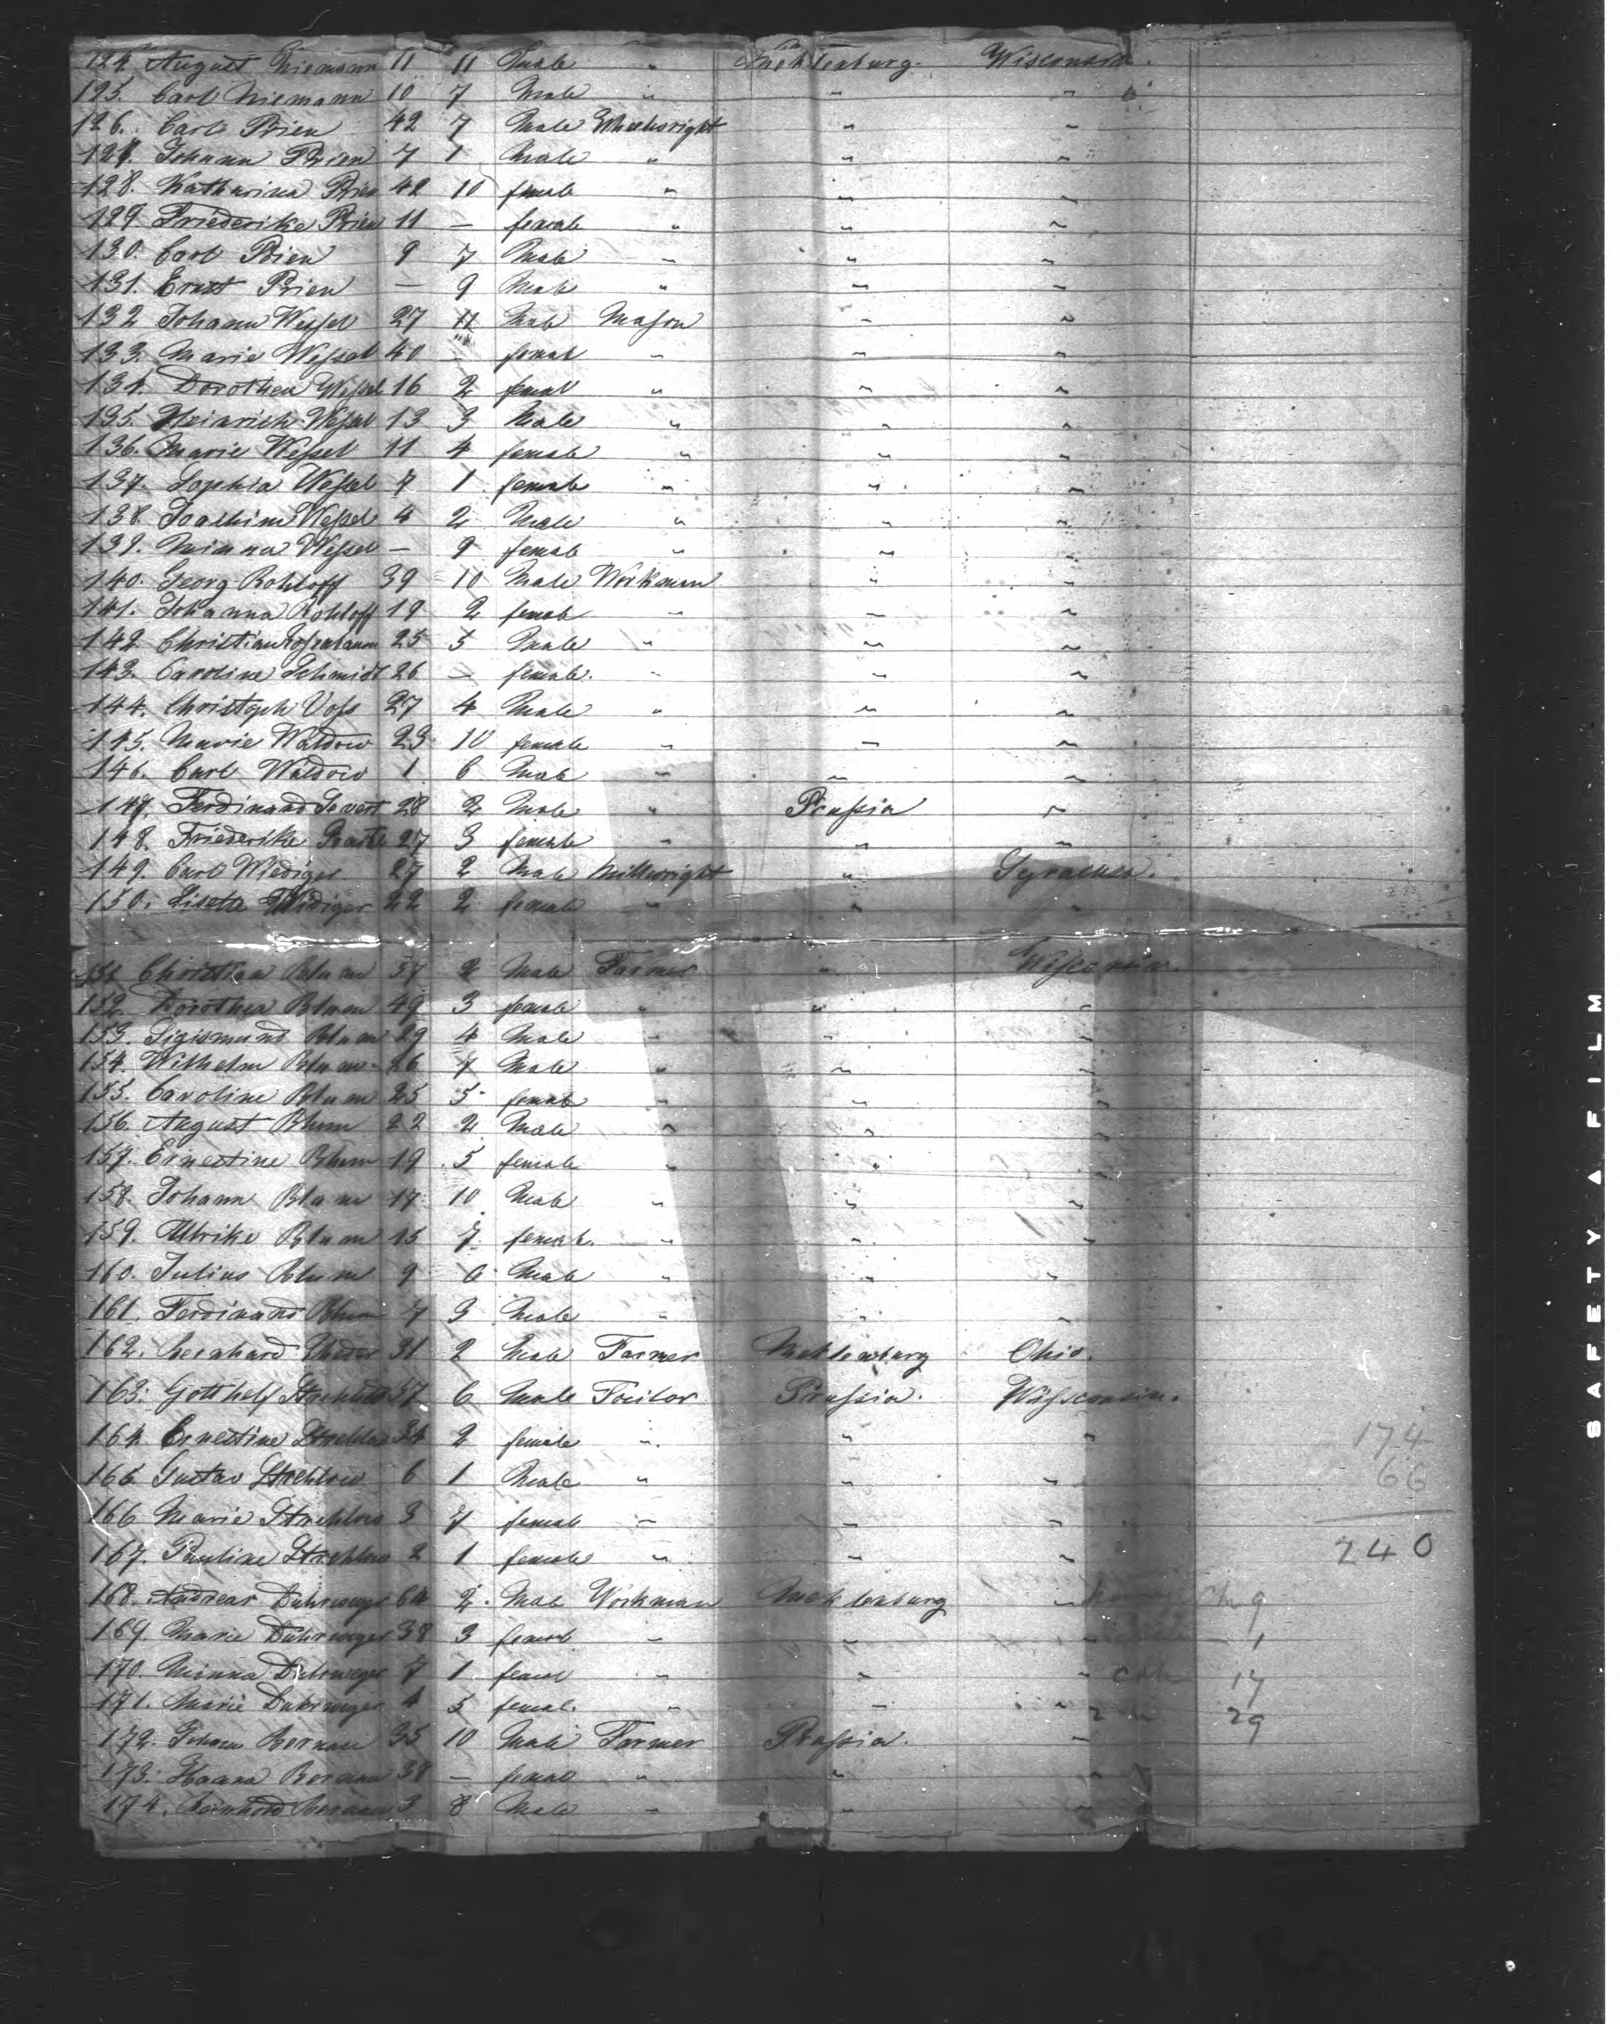 124. August Niemann 11 11 Male " Mecklenburg. Wisconsin.
125. Carl Niemann 10 7 Male " " "
126. Carl Prien 42 7 Male Wheelwright " "
127. Johann Prien 7 1 Male " " "
128. Katharina Prien 42 10 female " " "
129 Friederike Prien 11 – female " " "
130. Carl Prien 9 7 Male " " "
131. Ernst Prien – 9 Male " " "
132 Johann Wessel 27 11 Male Mason " "
133. Marie Wessel 40 – female " " "
134. Dorothea Wessel 16 2 female " " "
135. Heinrich Wessel 13 3 Male " " "
136. Marie Wessel 11 4 female " " "
137. Sophia Wessel 7 1 female " " "
138. Joachim Wessel 4 2 Male " " "
139. Minna Wessel – 9 female " " "
140. Georg Rohloff 39 10 Male Workman " "
141. Johanna Rohloff 19 2 female " " "
142 Christian 25 5 Male " " "
143. Caroline Schmidt 26 – female. " " "
144. Christoph Voss 27 4 Male " " "
145. Marie Waldow 23 10 female " " "
146. Carl Waldow 1 6 Male " " "
147. Ferdinand Severt 28 2 Male " Prussia "
148. Friederike 27 3 female " " "
149. Carl Wediger 27 2 Male Millwright " Syracuse.
150. Lisette Wediger 22 2 female " " "
151 Christian Blum 57 2 Male Farmer " Wisconsin.
152. Dorothea Blum 49 3 female " " "
153. Sigismund Blum 29 4 Male " " "
154. Wilhelm Blum 26 7 Male " " "
155. Caroline Blum 25 5 female " " "
156. August Blum 22 2 Male " " "
157. Ernestine Blum 19 5 female " " "
158. Johann Blum 17 10 Male " " "
159. Ulrike Blum 15 7 female. " " "
160. Julius Blum 9 Male " " "
161. Ferdinand Blum 7 3 Male " " "
162. 31 2 Male Farmer Mecklenburg Ohio.
163. Gotthelf Strehlow 37 6 Male Prussia. Wisconsin.
164. Ernestine Strehlow 34 2 female " " "
165 Gustav Strehlow 6 1 Male " " "
166 Marie Strehlow 3 7 female " " "
167. Pauline Strehlow 2 1 female " " "
168. Andreas 64 2 Male Workman Mecklenburg "
169. Marie 38 3 female " " "
170. Minna 7 1 female " " "
171. Marie 4 5 female. " " "
172. Johann Borman 35 10 Male Farmer Prussia. "
173. Hanna Borman 38 – female " " "
174. Borman 3 8 Male " " "
174
66
240
9
1
17
29
SAFETY FILM